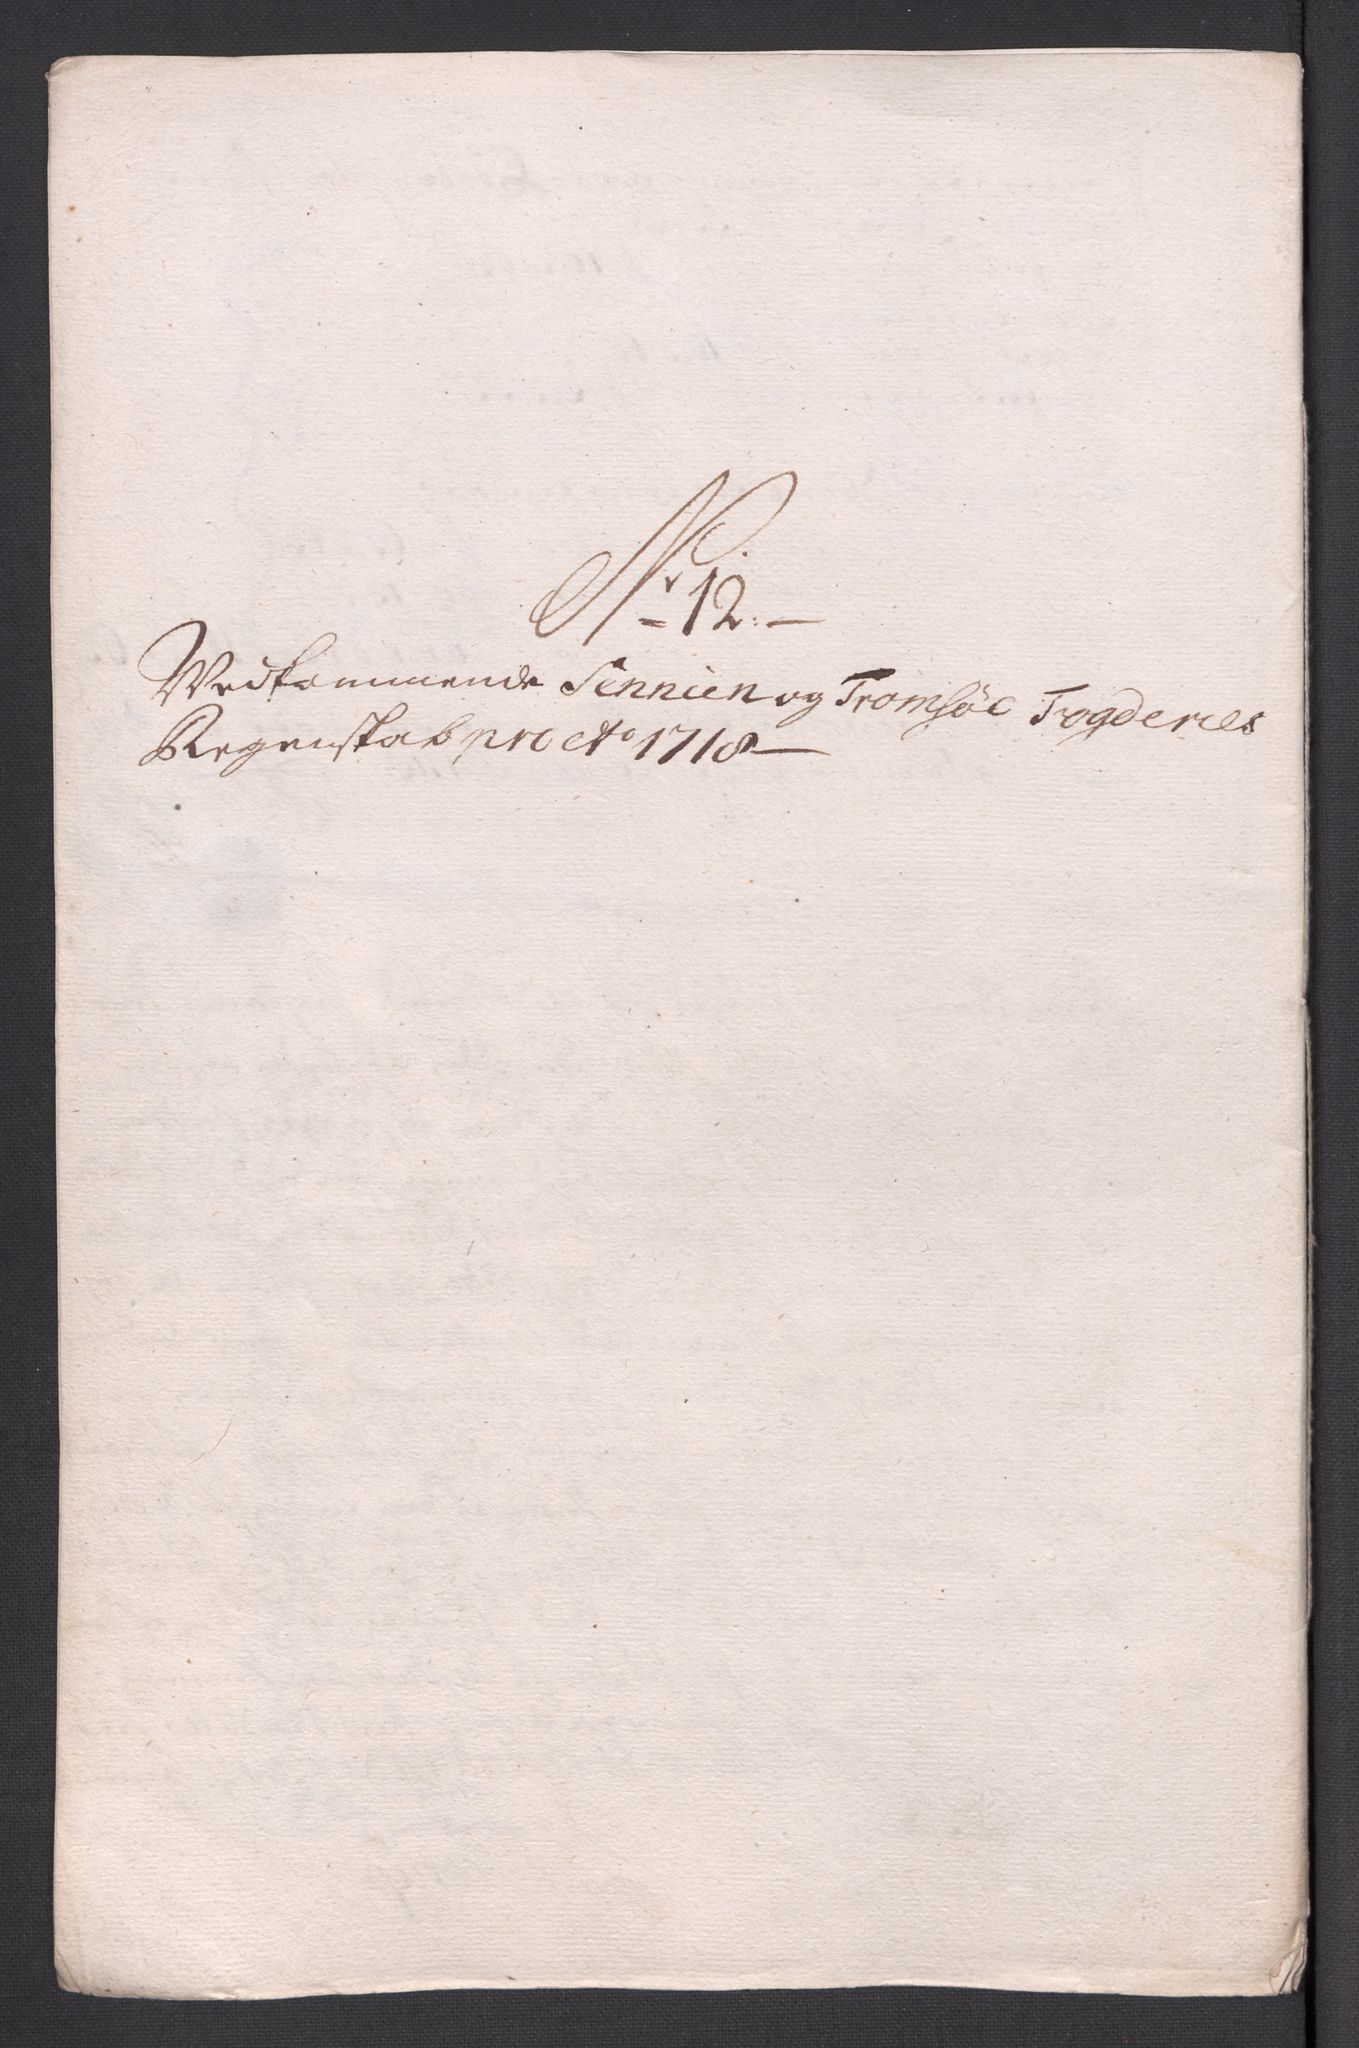 Nr 12.
Vedkommende Sennien og Tromsöe Fogderies
Regenskab pro Ao 1718